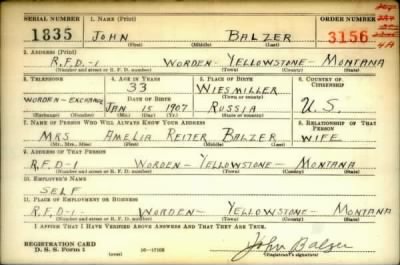 SERIAL NUMBER 1. NAME (Print) ORDER NUMBER
1835 JOHN BALZER 3156
(First) (Middle) (Last)
4A
2. ADDRESS (Print)
R.F.D.-1 WORDEN- YELLOWSTONE- MONTANA
(Number and street or R. F. D. number) (Town) (County) (State)
3. TELEPHONE 4. AGE IN YEARS 5. PLACE OF BIRTH 6. COUNTRY OF CITIZENSHIP
33 WIESMILLER
DATE OF BIRTH (Town or county)
WORDEN-EXCHANGE JAN 15 1907 RUSSIA U.S.
(Exchange) (Number) (Mo.) (Day) (Yr.) (State or country)
7. NAME OF PERSON WHO WILL ALWAYS KNOW YOUR ADDRESS 8. RELATIONSHIP OF THAT PERSON
MRS AMELIA REITER BALZER WIFE
(Mr., Mrs., Miss) (First) (Middle) (Last)
9. ADDRESS OF THAT PERSON
R.F.D-1 WORDEN- YELLOWSTONE- MONTANA
(Number and street or R. F. D. number) (Town) (County) (State)
10. EMPLOYER'S NAME
SELF
11. PLACE OF EMPLOYMENT OR BUSINESS
R.F.D-1- WORDEN- YELLOWSTONE- MONTANA
(Number and street or R. F. D. number) (Town) (County) (State)
I AFFIRM THAT I HAVE VERIFIED ABOVE ANSWERS AND THAT THEY ARE TRUE.
REGISTRATION CARD
D. S. S. Form 1 16-17105 John Balzer
(Registrant's signature)